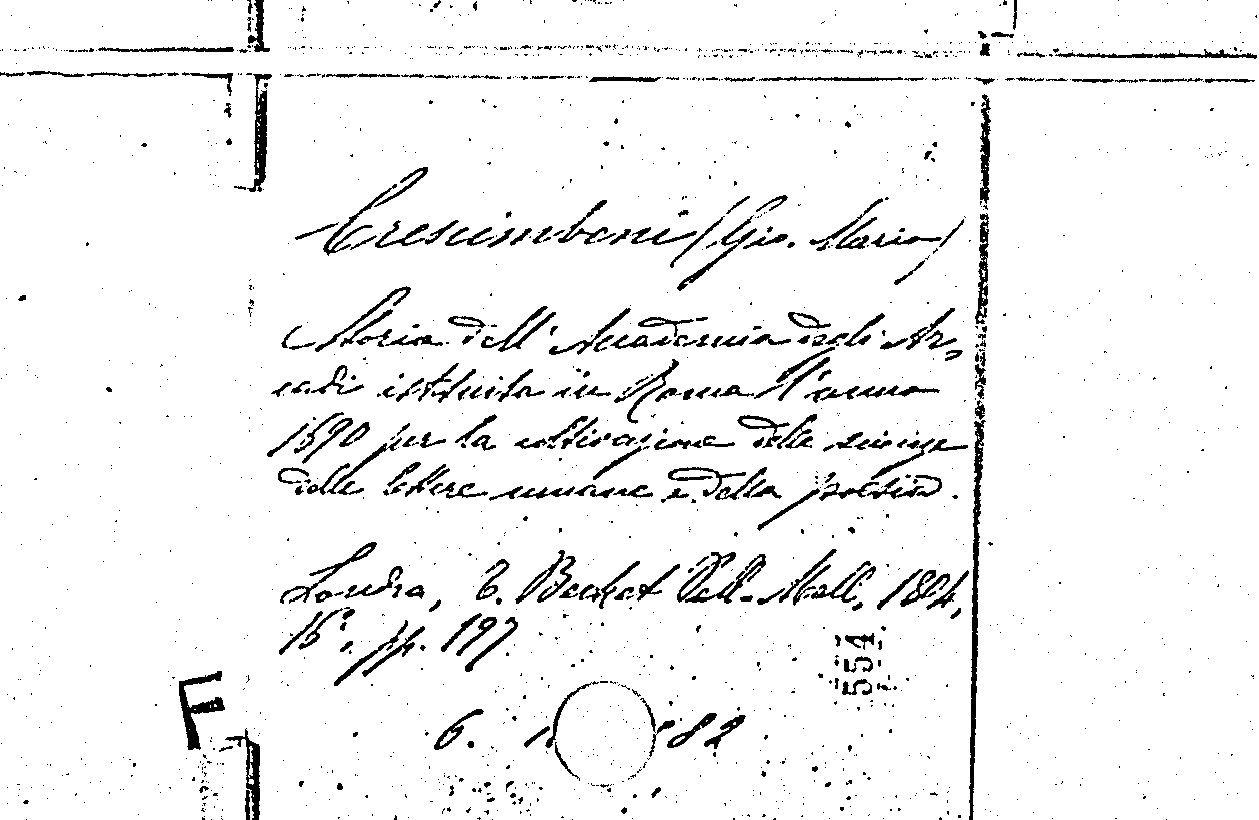 Crescimbeni (Gio. Maria)
Storia dell' Accademia degli Ar-
cadi istituita in Roma l'anno
1690 per la coltivazione delle scienze
delle lettere umane e della poesia.
Londra, T. Becket Pall-Mall, 1804,
16°, pp. 197
554
F
6. 82